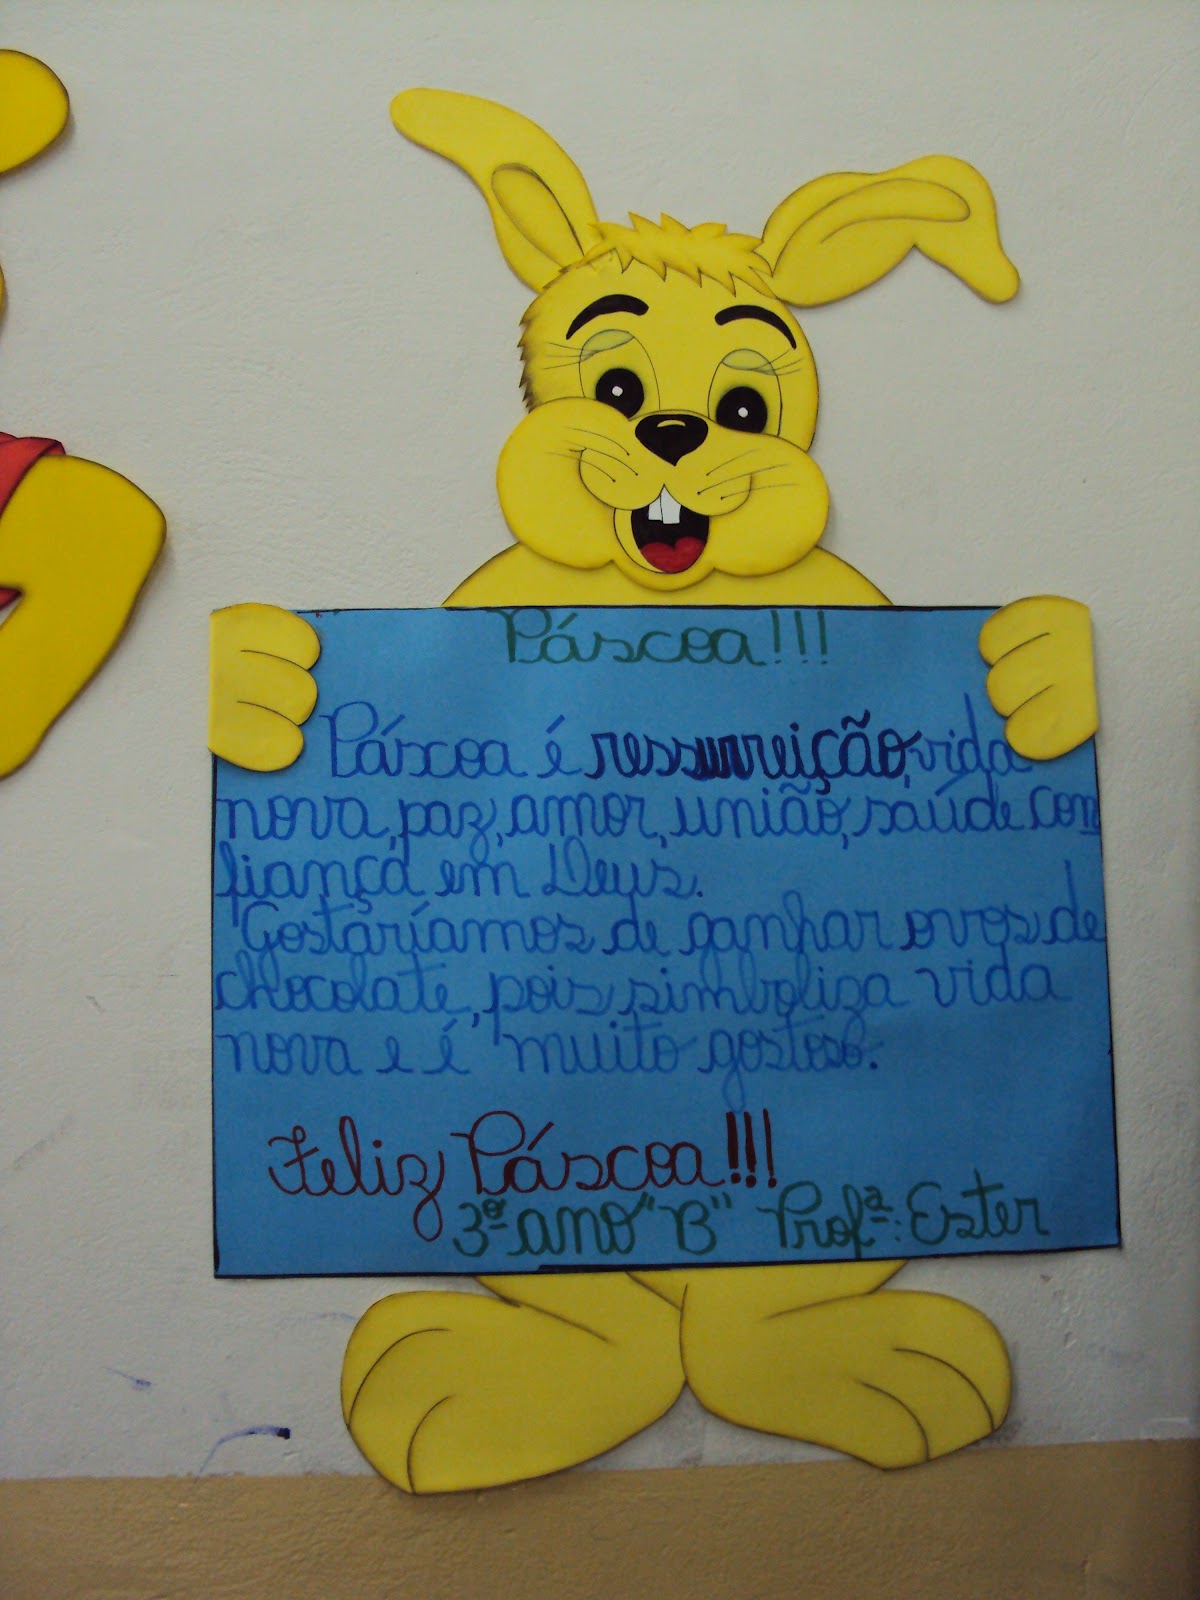 Páscoa!!!
Páscoa é ressurreição, vida
nova, paz, amor, união, saúde con
fiança em Deus.
Gostaríamos de ganhar ovos de
chocolate, pois simboliza vida
nova e é muito gostoso.
Feliz Páscoa!!!
3º ano "B" Profª: Ester